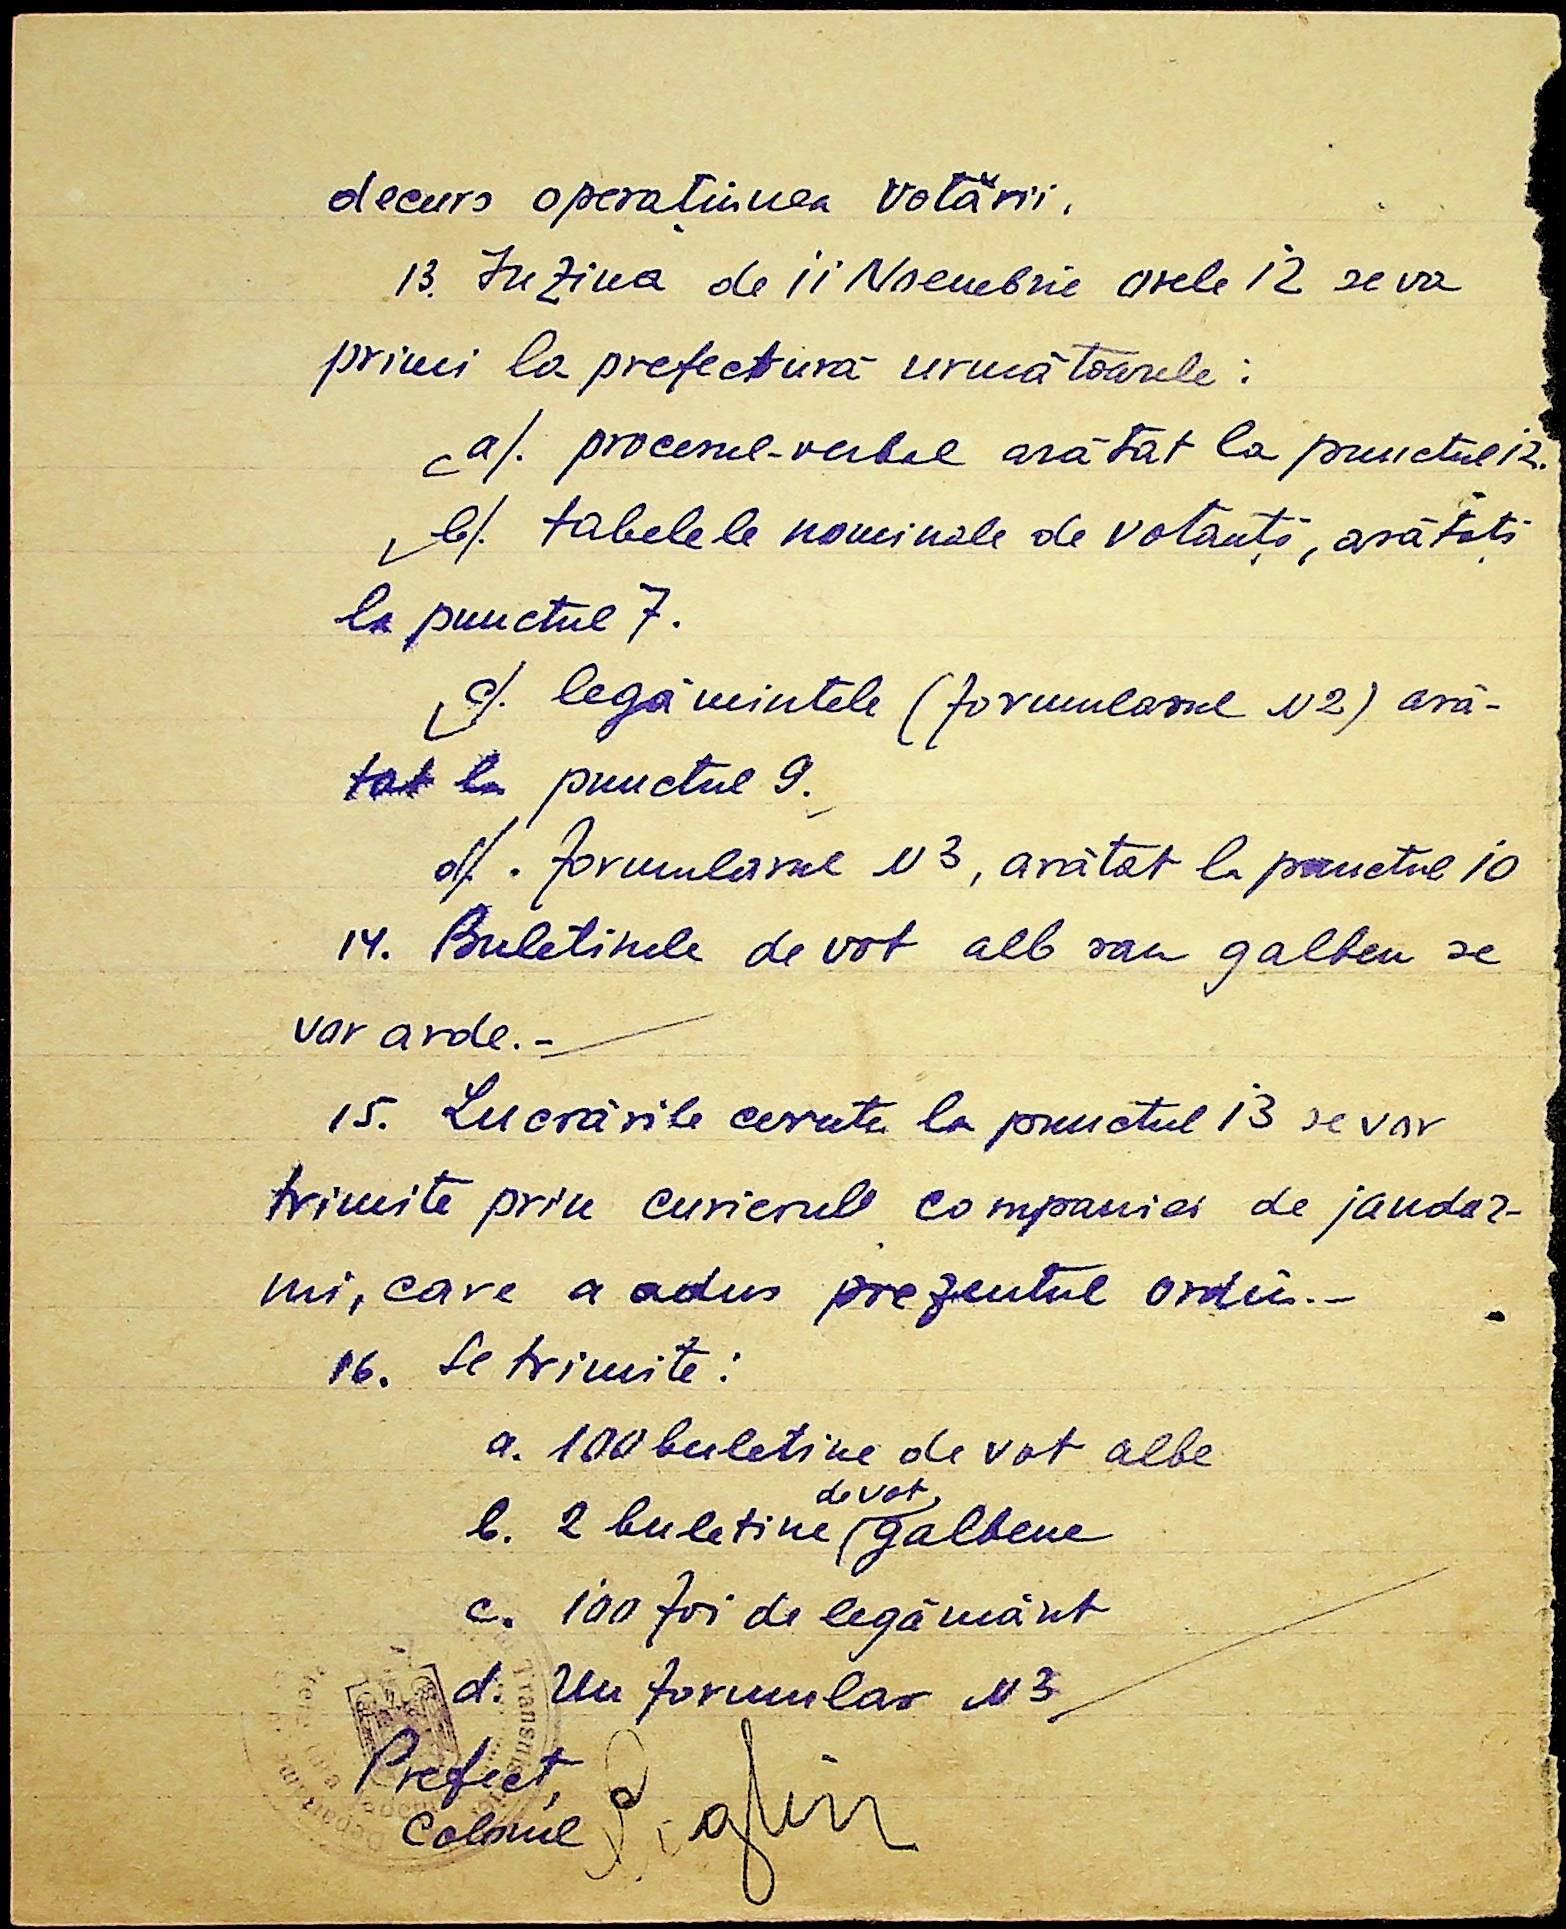 decurs operațiunea votării.
13. In ziua de 11 Noembrie orele 12 se va
primi la prefectură următoarele:
a/. procesul-verbal arătat la punctul 12.
b/. tabelele nominale de votanți, arătați
la punctul 7.
c/. legămintele (formularul N2) ară-
tat la punctul 9.
d/. formularul N3, arătat la punctul 10
14. Buletinele de vot alb sau galben se
vor arde.-
15. Lucrările cerute la punctul 13 se vor
trimite prin curierul companiei de jandar-
mi, care a adus prezentul ordin.-
16. Se trimite:
a. 100 buletine de vot albe
de vot
b. 2 buletine galbene
c. 100 foi de legământ
d. Un formular N3
Prefect,
Colonel